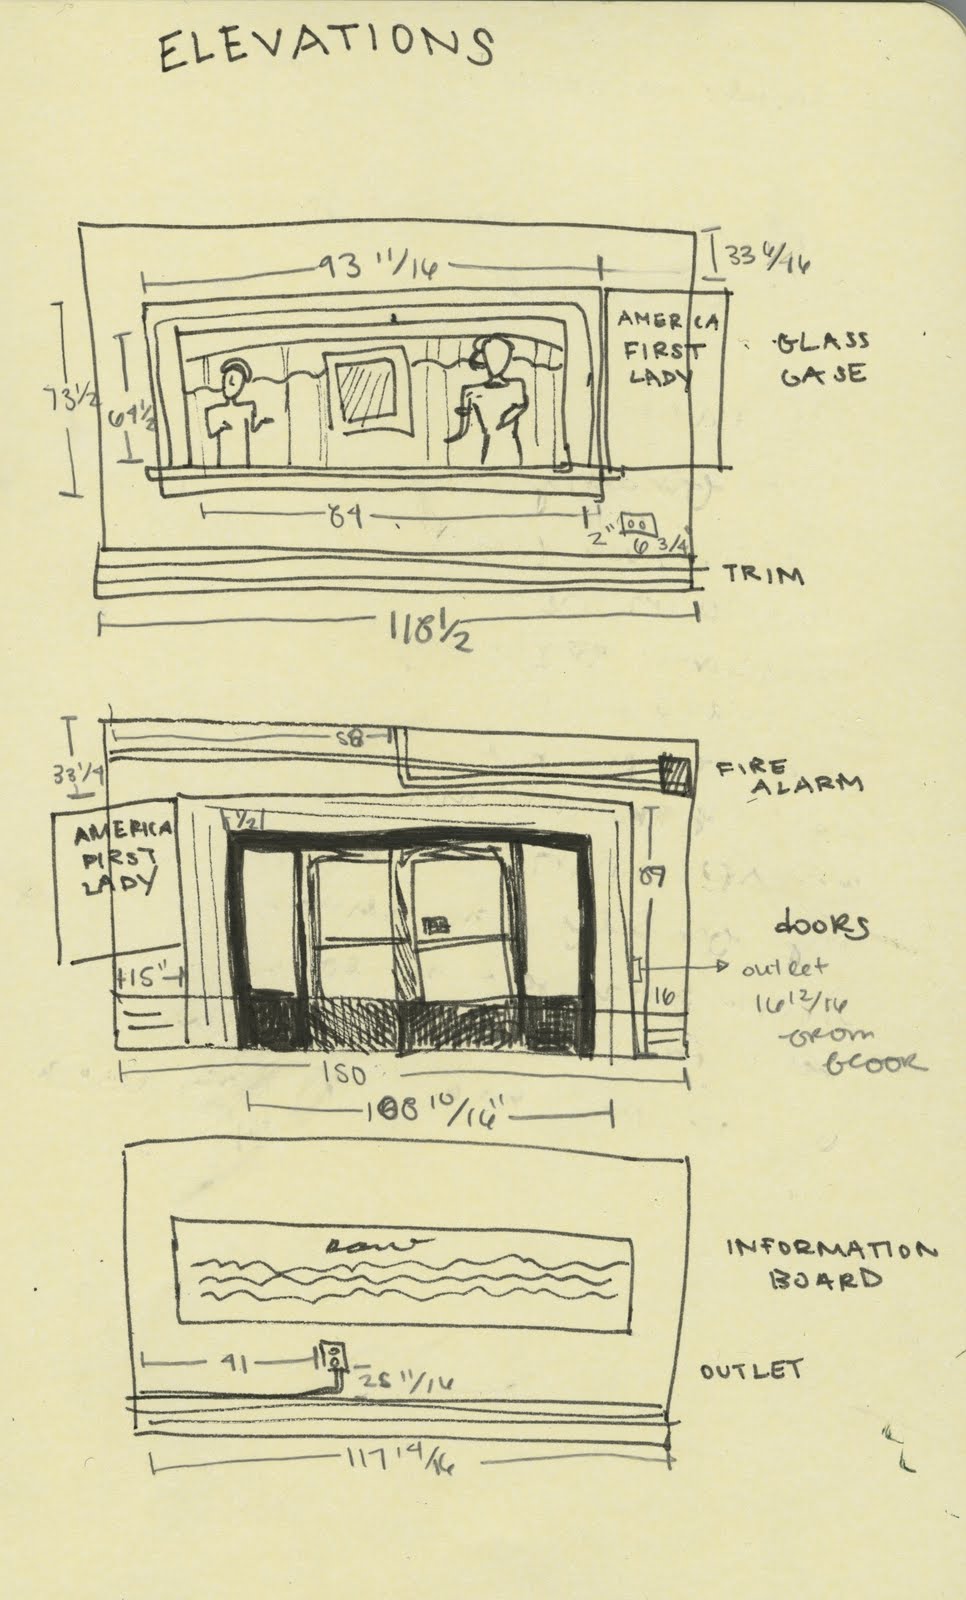 ELEVATIONS
93 11/16
33 6/16
AMERICA
FIRST
LADY
GLASS
CASE
73 1/2
64 1/2
84
2"
6 3/4
TRIM
118 1/2
58
33 1/4
FIRE
ALARM
AMERICA
FIRST
LADY
1/2
89
doors
outlet
16 12/16
FROM
FLOOR
15"
16
150
10/16"
INFORMATION
BOARD
41
25 11/16
OUTLET
117 14/16